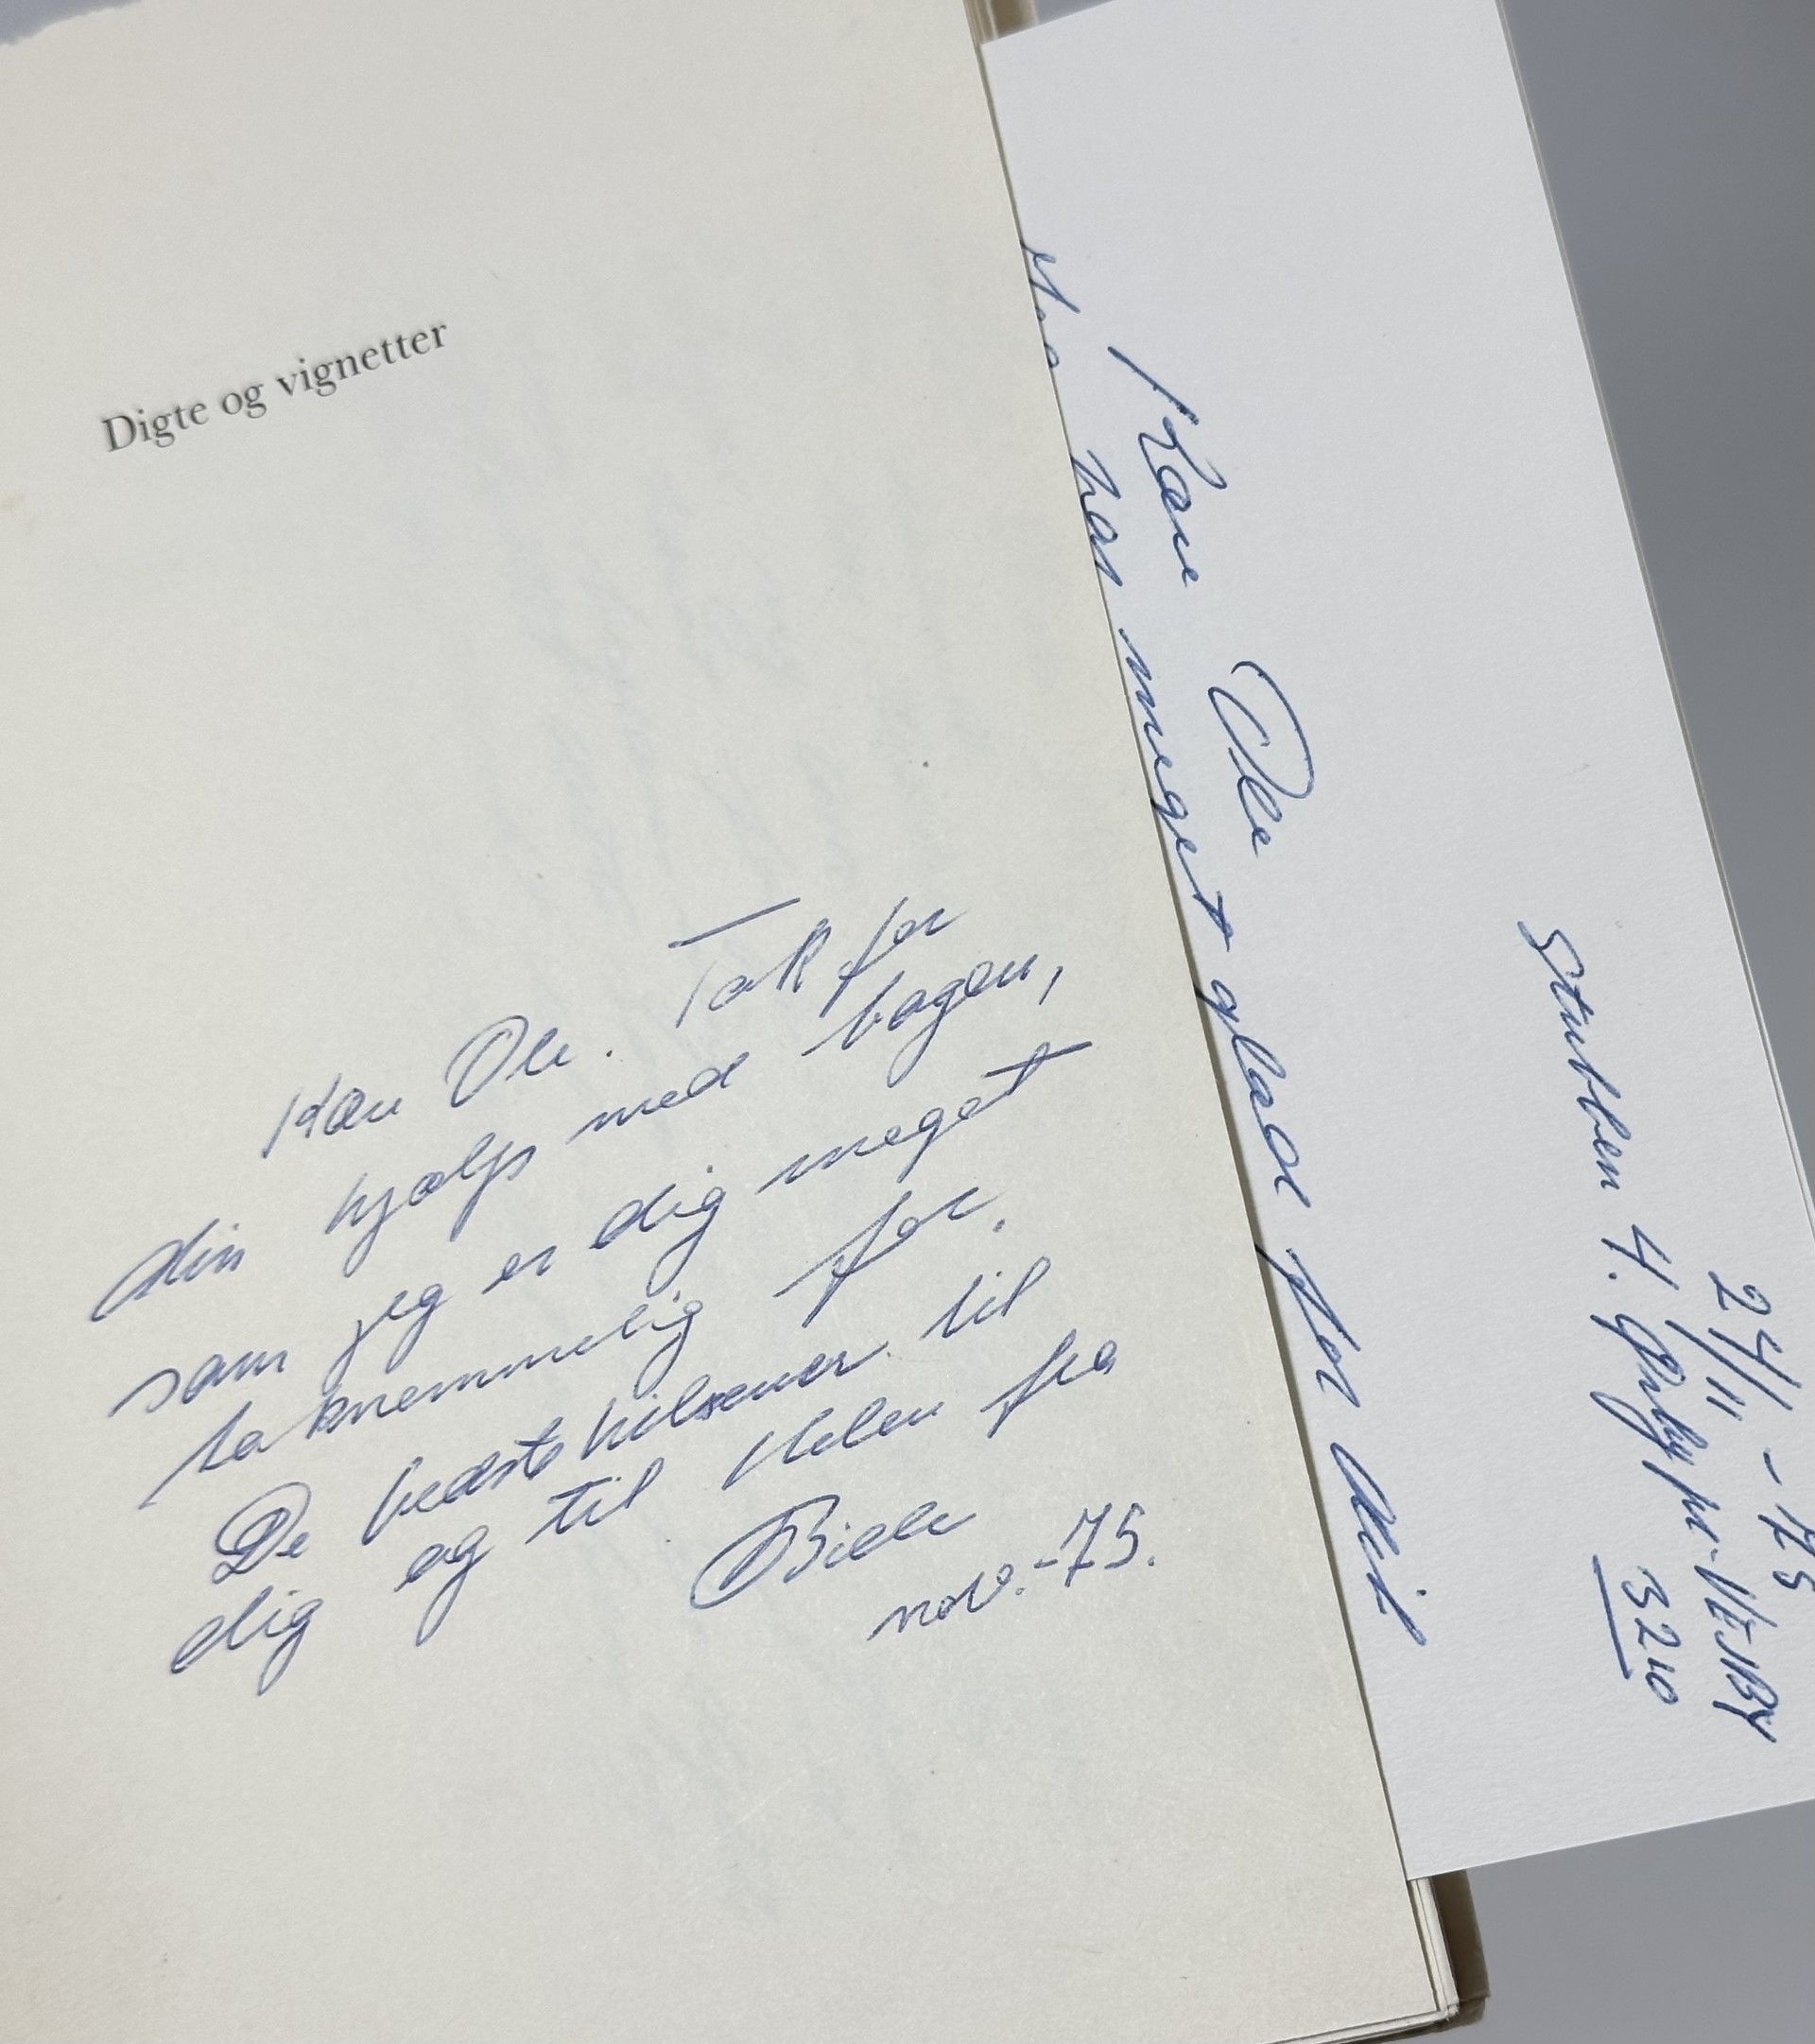 Digte og vignetter
Kære Ole. Tak for
din hjælp med bogen,
som jeg er dig meget
taknemmelig for.
De bedste hilsener til
dig og til Helen fra
nov. -75.
24/11 -75
Stubben 4. pr. VEJBY
3210
Kære Ole
har meget glad for dit